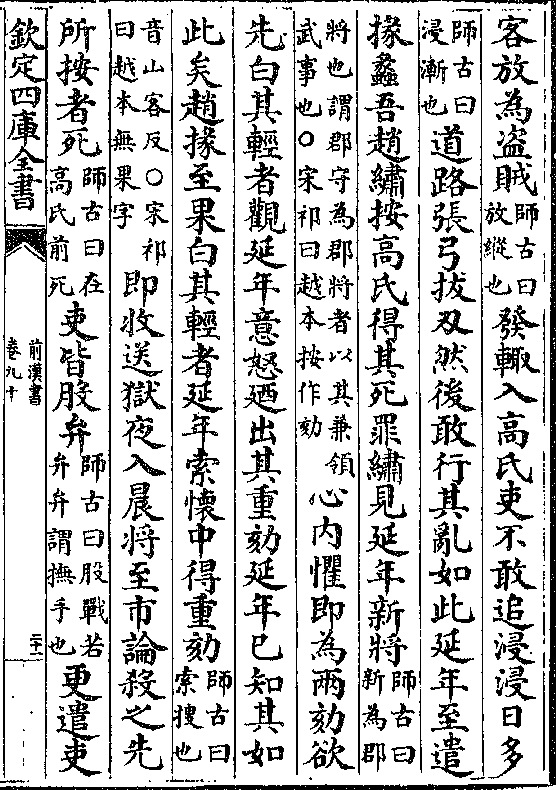 客放為盗賊師古曰放縱也發輙入高氏吏不敢追浸浸日多
師古曰浸漸也道路張弓拔刄然後敢行其亂如此延年至遣
掾蠡吾趙繡按高氏得其死罪繡見延年新將師古曰新為郡
將也謂郡守為郡將者以其兼領武事也○宋祁曰越本按作劾心内懼即為兩劾欲
先白其輕者觀延年意怒廼出其重劾延年已知其如
此矣趙掾至果白其輕者延年索懷中得重劾師古曰索搜也
音山客反○宋祁曰越本無果字即收送獄夜入晨將至市論殺之先
所按者死師古曰在高氏前死吏皆股弁師古曰股戰若弁弁謂撫手也更遣吏
欽定四庫全書
前漢書
卷九十
二十一